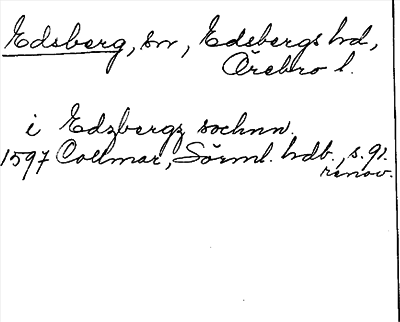 Edsberg, sn, Edsbergs hd,
Örebro l.
i Edzbergz sochnn.
1597 Collmar, Sörml. hdb., s. 91.
renov.